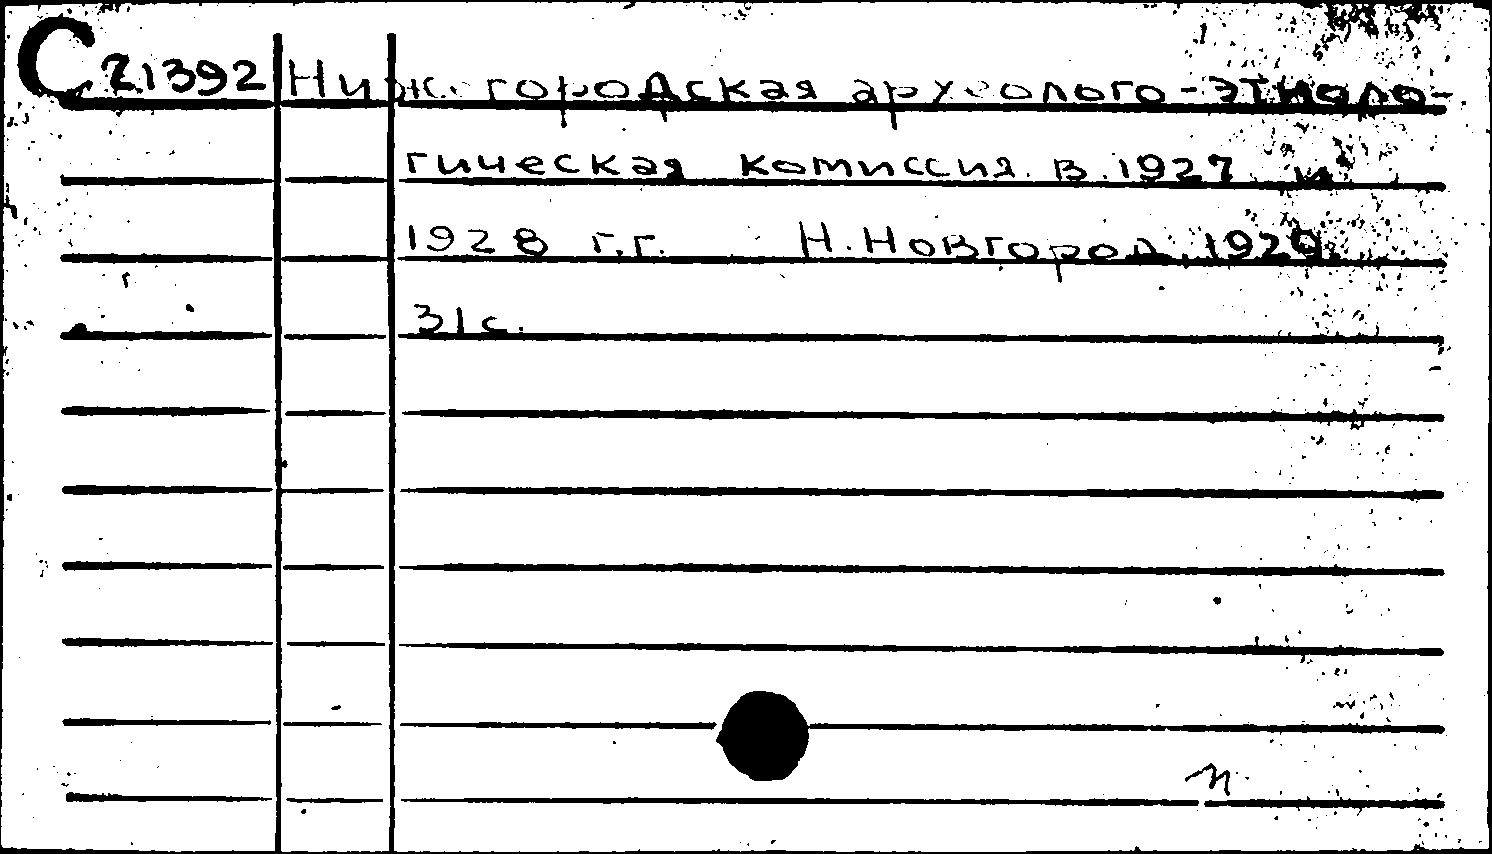 С 21392 Нижегородская археолого-этноло-
гическая комиссия в 1927 и
1928 г.г. Н.Новгород, 1929.
31 с.
п